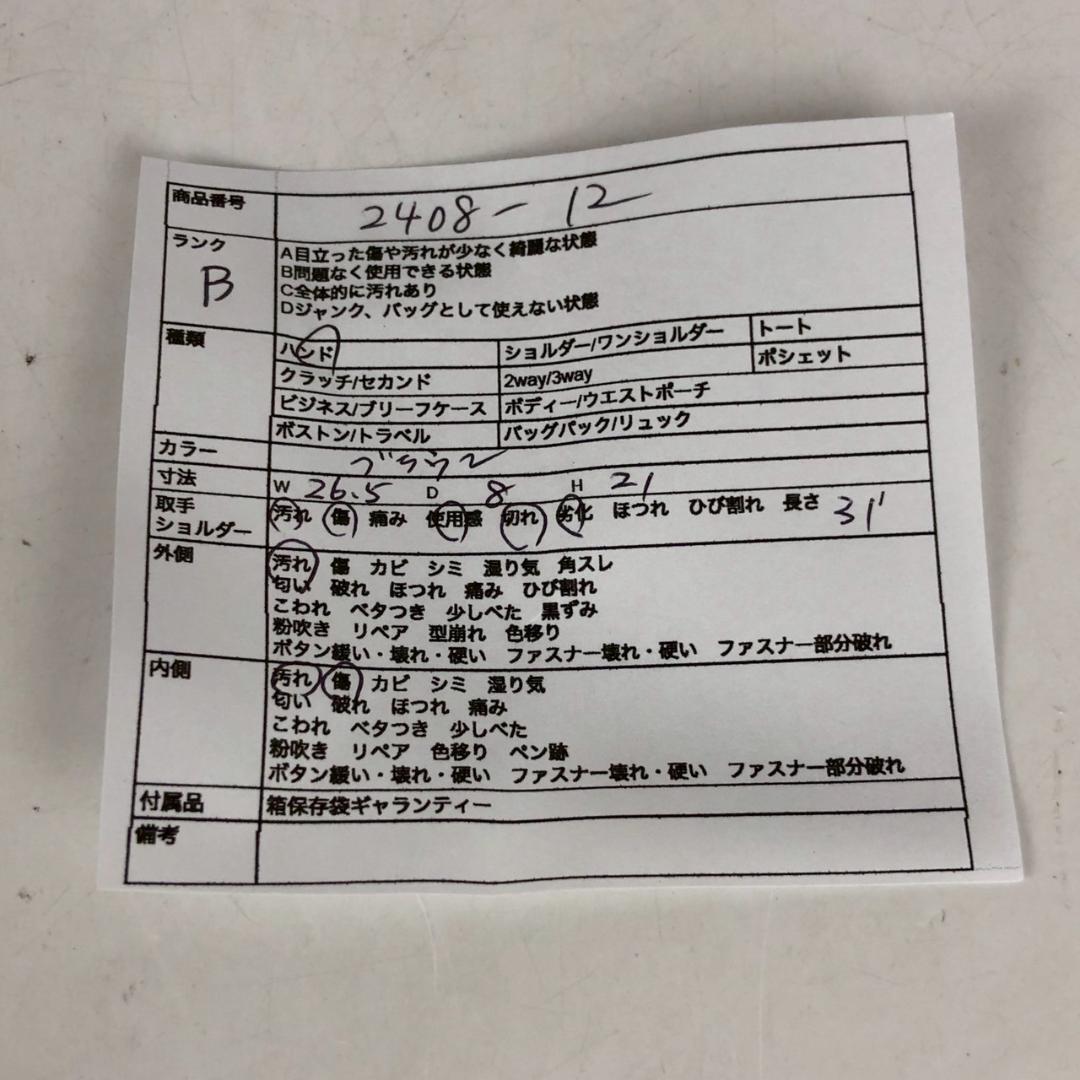 商品番号 2408-12
ランク B
A目立った傷や汚れが少なく綺麗な状態
B問題なく使用できる状態
C全体的に汚れあり
Dジャンク、バッグとして使えない状態
種類
ハンド ショルダー/ワンショルダー トート
クラッチ/セカンド 2way/3way ポシェット
ビジネス/ブリーフケース ボディー/ウエストポーチ
ボストン/トラベル バッグパック/リュック
カラー ブラウン
寸法 W 26.5 D 8 H 21
取手 汚れ 傷 痛み 使用感 切れ 劣化 ほつれ ひび割れ 長さ 31
ショルダー
外側 汚れ 傷 カビ シミ 湿り気 角スレ
匂い 破れ ほつれ 痛み ひび割れ
こわれ ベタつき 少しべた 黒ずみ
粉吹き リペア 型崩れ 色移り
ボタン緩い・壊れ・硬い ファスナー壊れ・硬い ファスナー部分破れ
内側 汚れ 傷 カビ シミ 湿り気
匂い 破れ ほつれ 痛み
こわれ ベタつき 少しべた
粉吹き リペア 色移り ペン跡
ボタン緩い・壊れ・硬い ファスナー壊れ・硬い ファスナー部分破れ
付属品 箱保存袋ギャランティー
備考